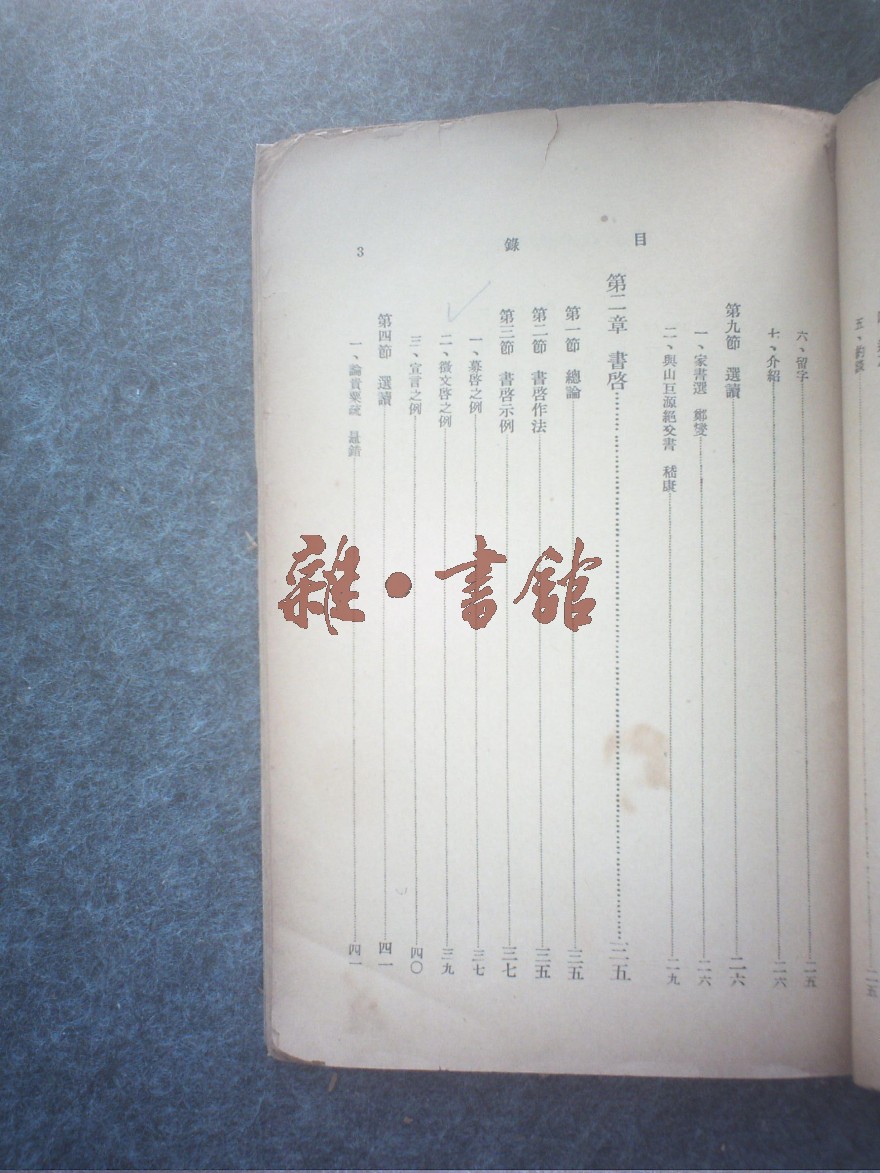 五、約談 二五
目 錄 3
六、留字 二五
七、介紹 二六
第九節 選讀 二六
一、家書選 鄭燮 二六
二、與山巨源絕交書 嵇康 二九
第二章 書啓 三五
第一節 總論 三五
第二節 書啓作法 三五
第三節 書啓示例 三七
一、募啓之例 三七
二、徵文啓之例 三九
三、宣言之例 四〇
第四節 選讀 四一
一、論貴粟疏 鼂錯 四一
雜·書館